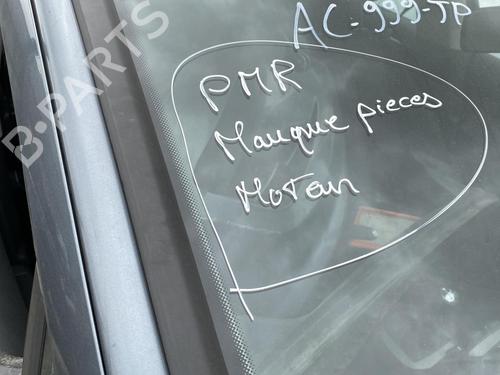 AC-999-TP
PMR
Manque pieces
Moteur
B-PARTS